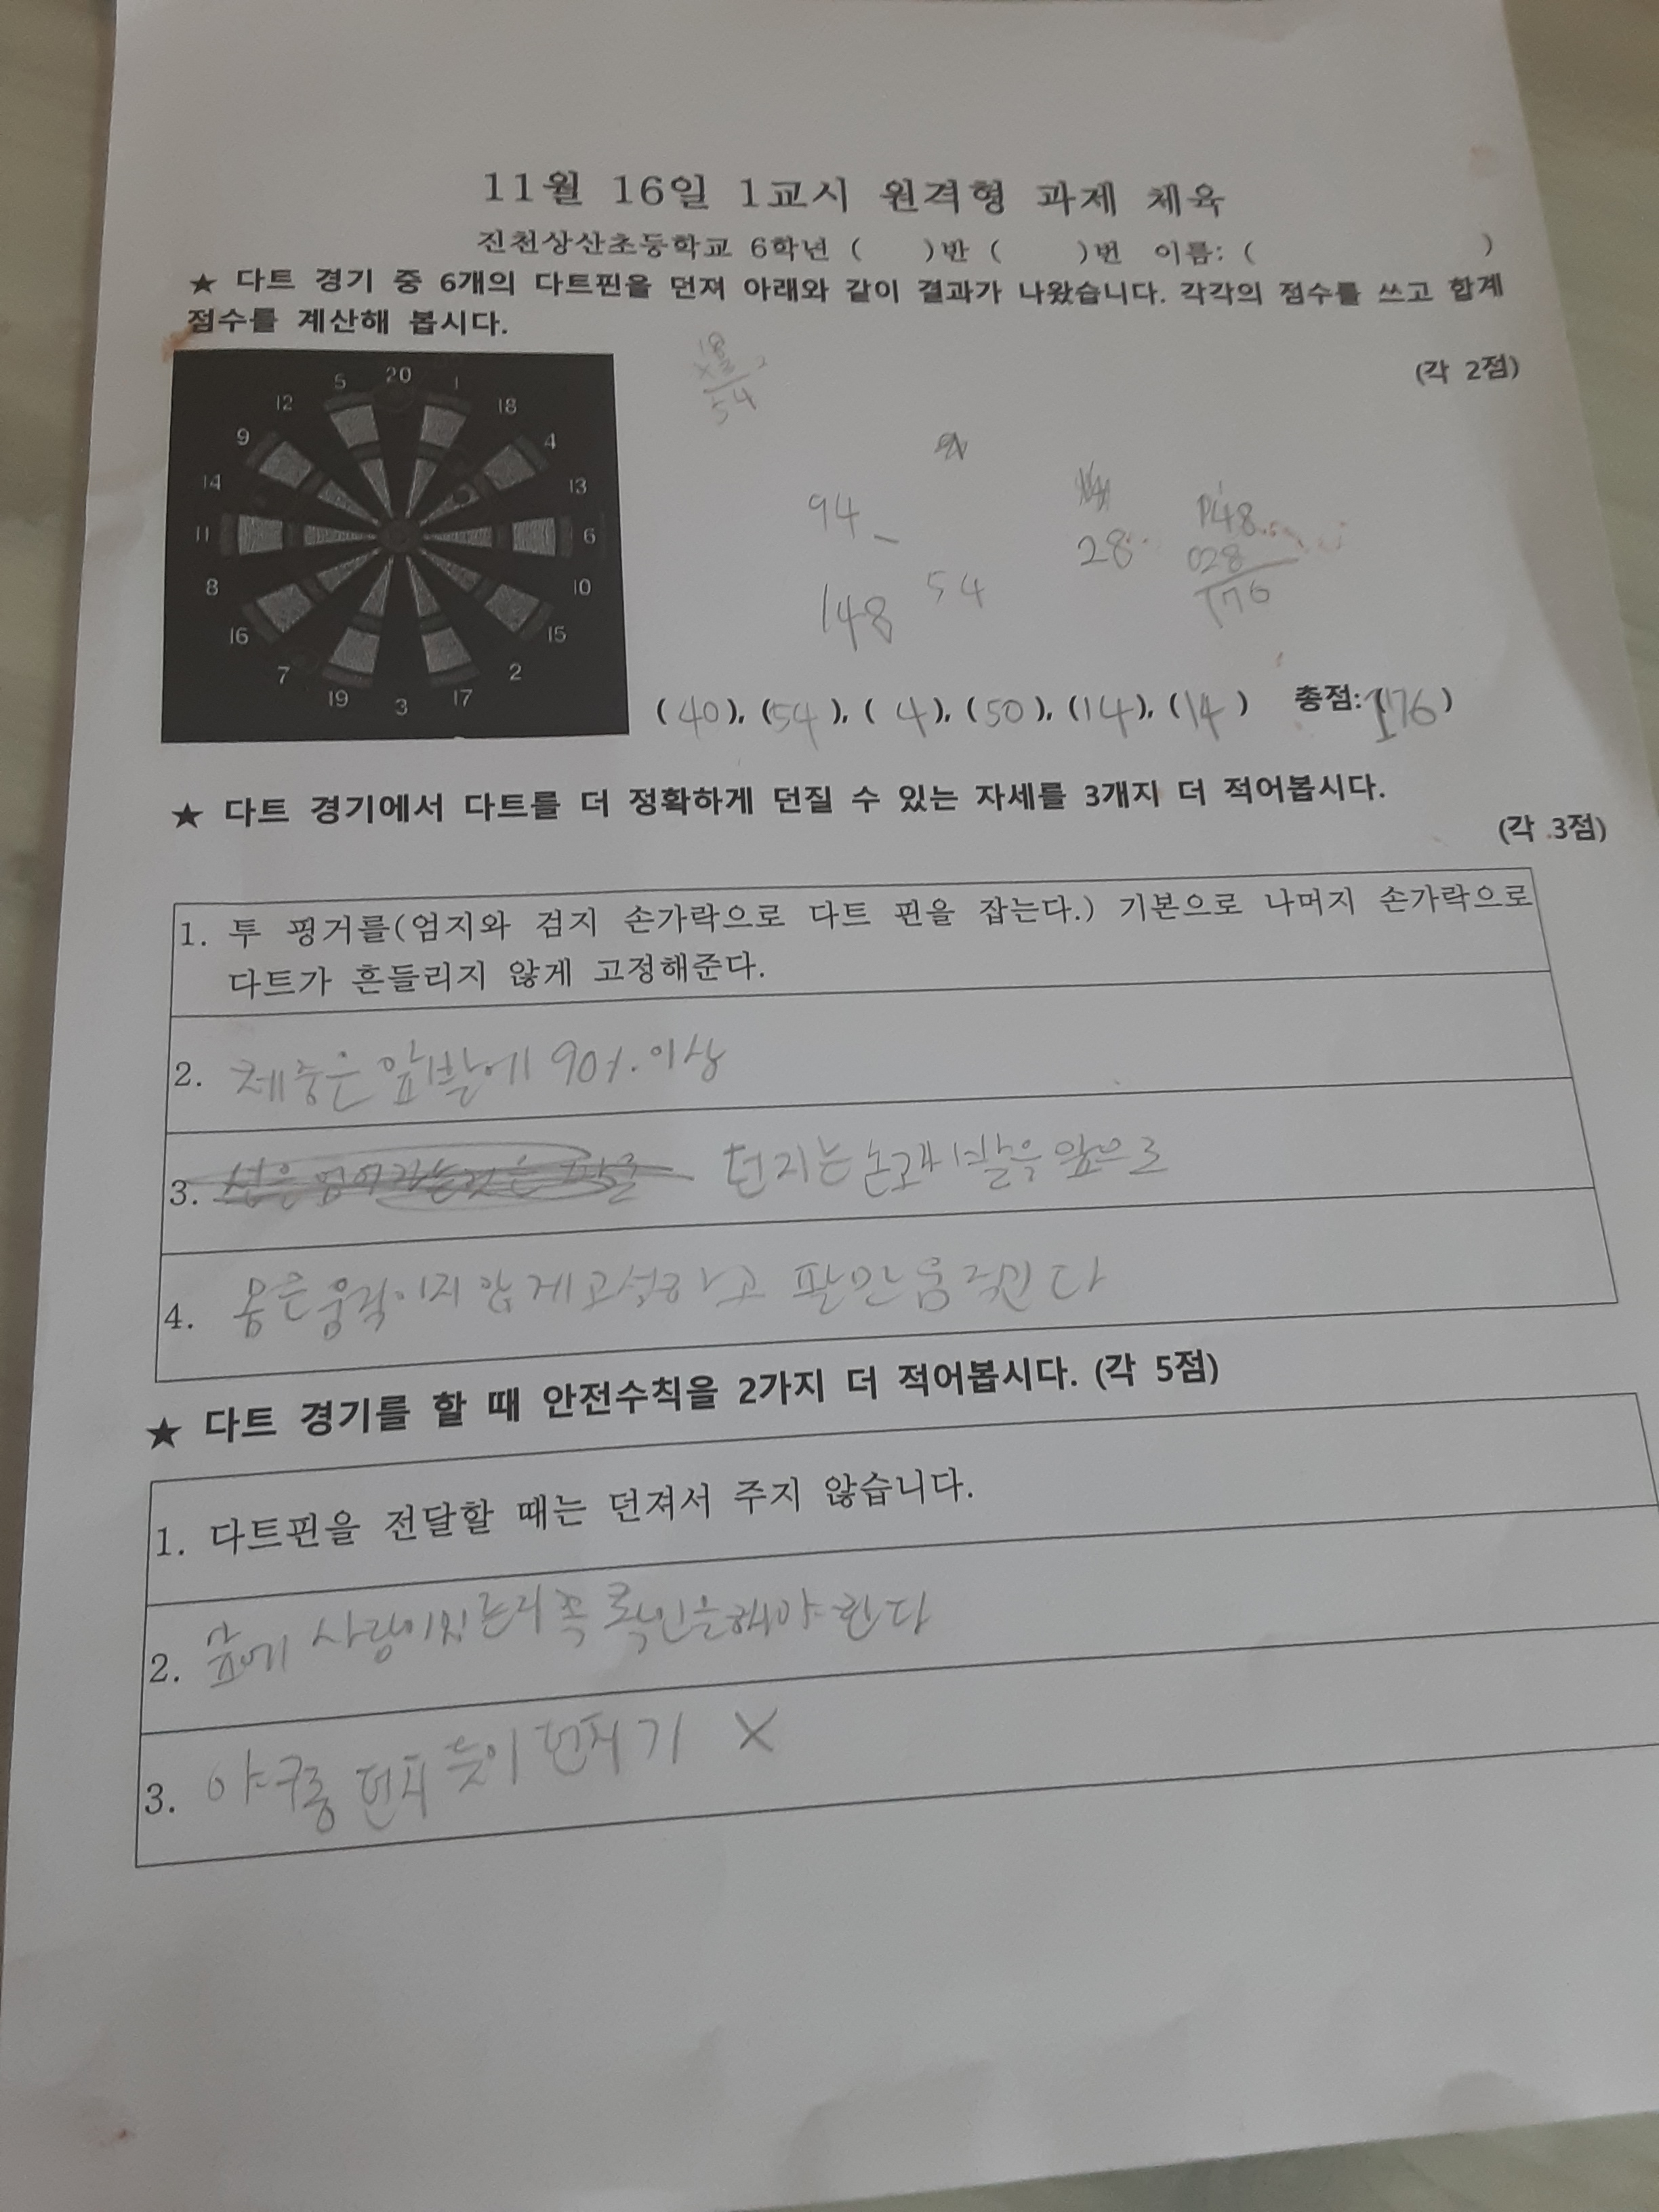 11월 16일 1교시 원격형 과제 체육
진천상산초등학교 6학년 ( )반 ( )번 이름: ( )
★ 다트 경기 중 6개의 다트핀을 던져 아래와 같이 결과가 나왔습니다. 각각의 점수를 쓰고 합계
점수를 계산해 봅시다.
(각 2점)
5 20 1
12 18
9 4
14 13
11 6
8 10
16 15
7 2
19 3 17
18
54
94
28
148
028
176
148 54
(40), (54), (4), (50), (14), (14) 총점: (176)
★ 다트 경기에서 다트를 더 정확하게 던질 수 있는 자세를 3개지 더 적어봅시다.
(각 3점)
1. 투 핑거를(엄지와 검지 손가락으로 다트 핀을 잡는다.) 기본으로 나머지 손가락으로
다트가 흔들리지 않게 고정해준다.
2. 체중은 앞발에 90%. 이상
3. 던지는 손과 발을 앞으로
4. 몸은 움직이지 않게 고정하고 팔만 움직인다
★ 다트 경기를 할 때 안전수칙을 2가지 더 적어봅시다. (각 5점)
1. 다트핀을 전달할 때는 던져서 주지 않습니다.
2. 앞에 사람이 있는지 꼭 확인을 해야 한다
3. 야구공 던지듯이 던지기 X